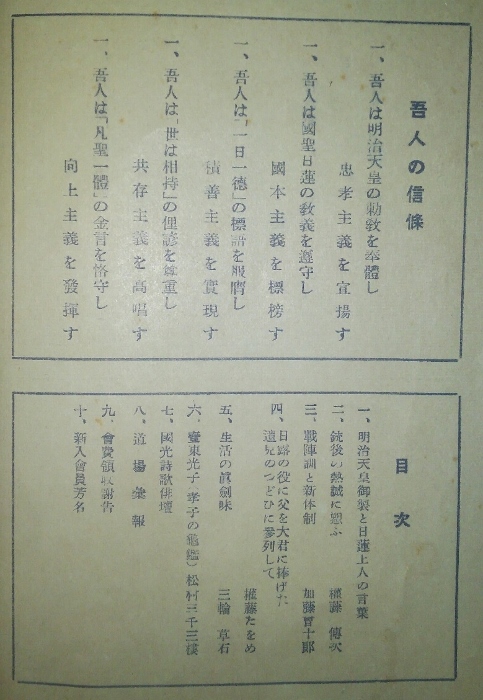 吾人の信條
一、吾人は明治天皇の勅敎を奉體し
忠孝主義を宣揚す
一、吾人は國聖日蓮の敎義を遵守し
國本主義を標榜す
一、吾人は「一日一德」の標語を服膺し
積善主義を實現す
一、吾人は「世は相持」の俚諺を尊重し
共存主義を高唱す
一、吾人は「凡聖一體」の金言を恪守し
向上主義を發揮す
目次
一、明治天皇御製と日蓮上人の言葉
二、銃後の熱誠に愬ふ 權藤傳次
三、戰陣訓と新体制 加藤晋十郞
四、日露の役に父を大君に捧げた
遺兒のつどひに參列して 權藤たをめ
五、生活の眞劍味 三輪草石
六、東光子(孝子の龜鑑) 松村三千三樓
七、國光詩歌俳壇
八、道場彙報
九、會費領收謝告
十、新入會員芳名